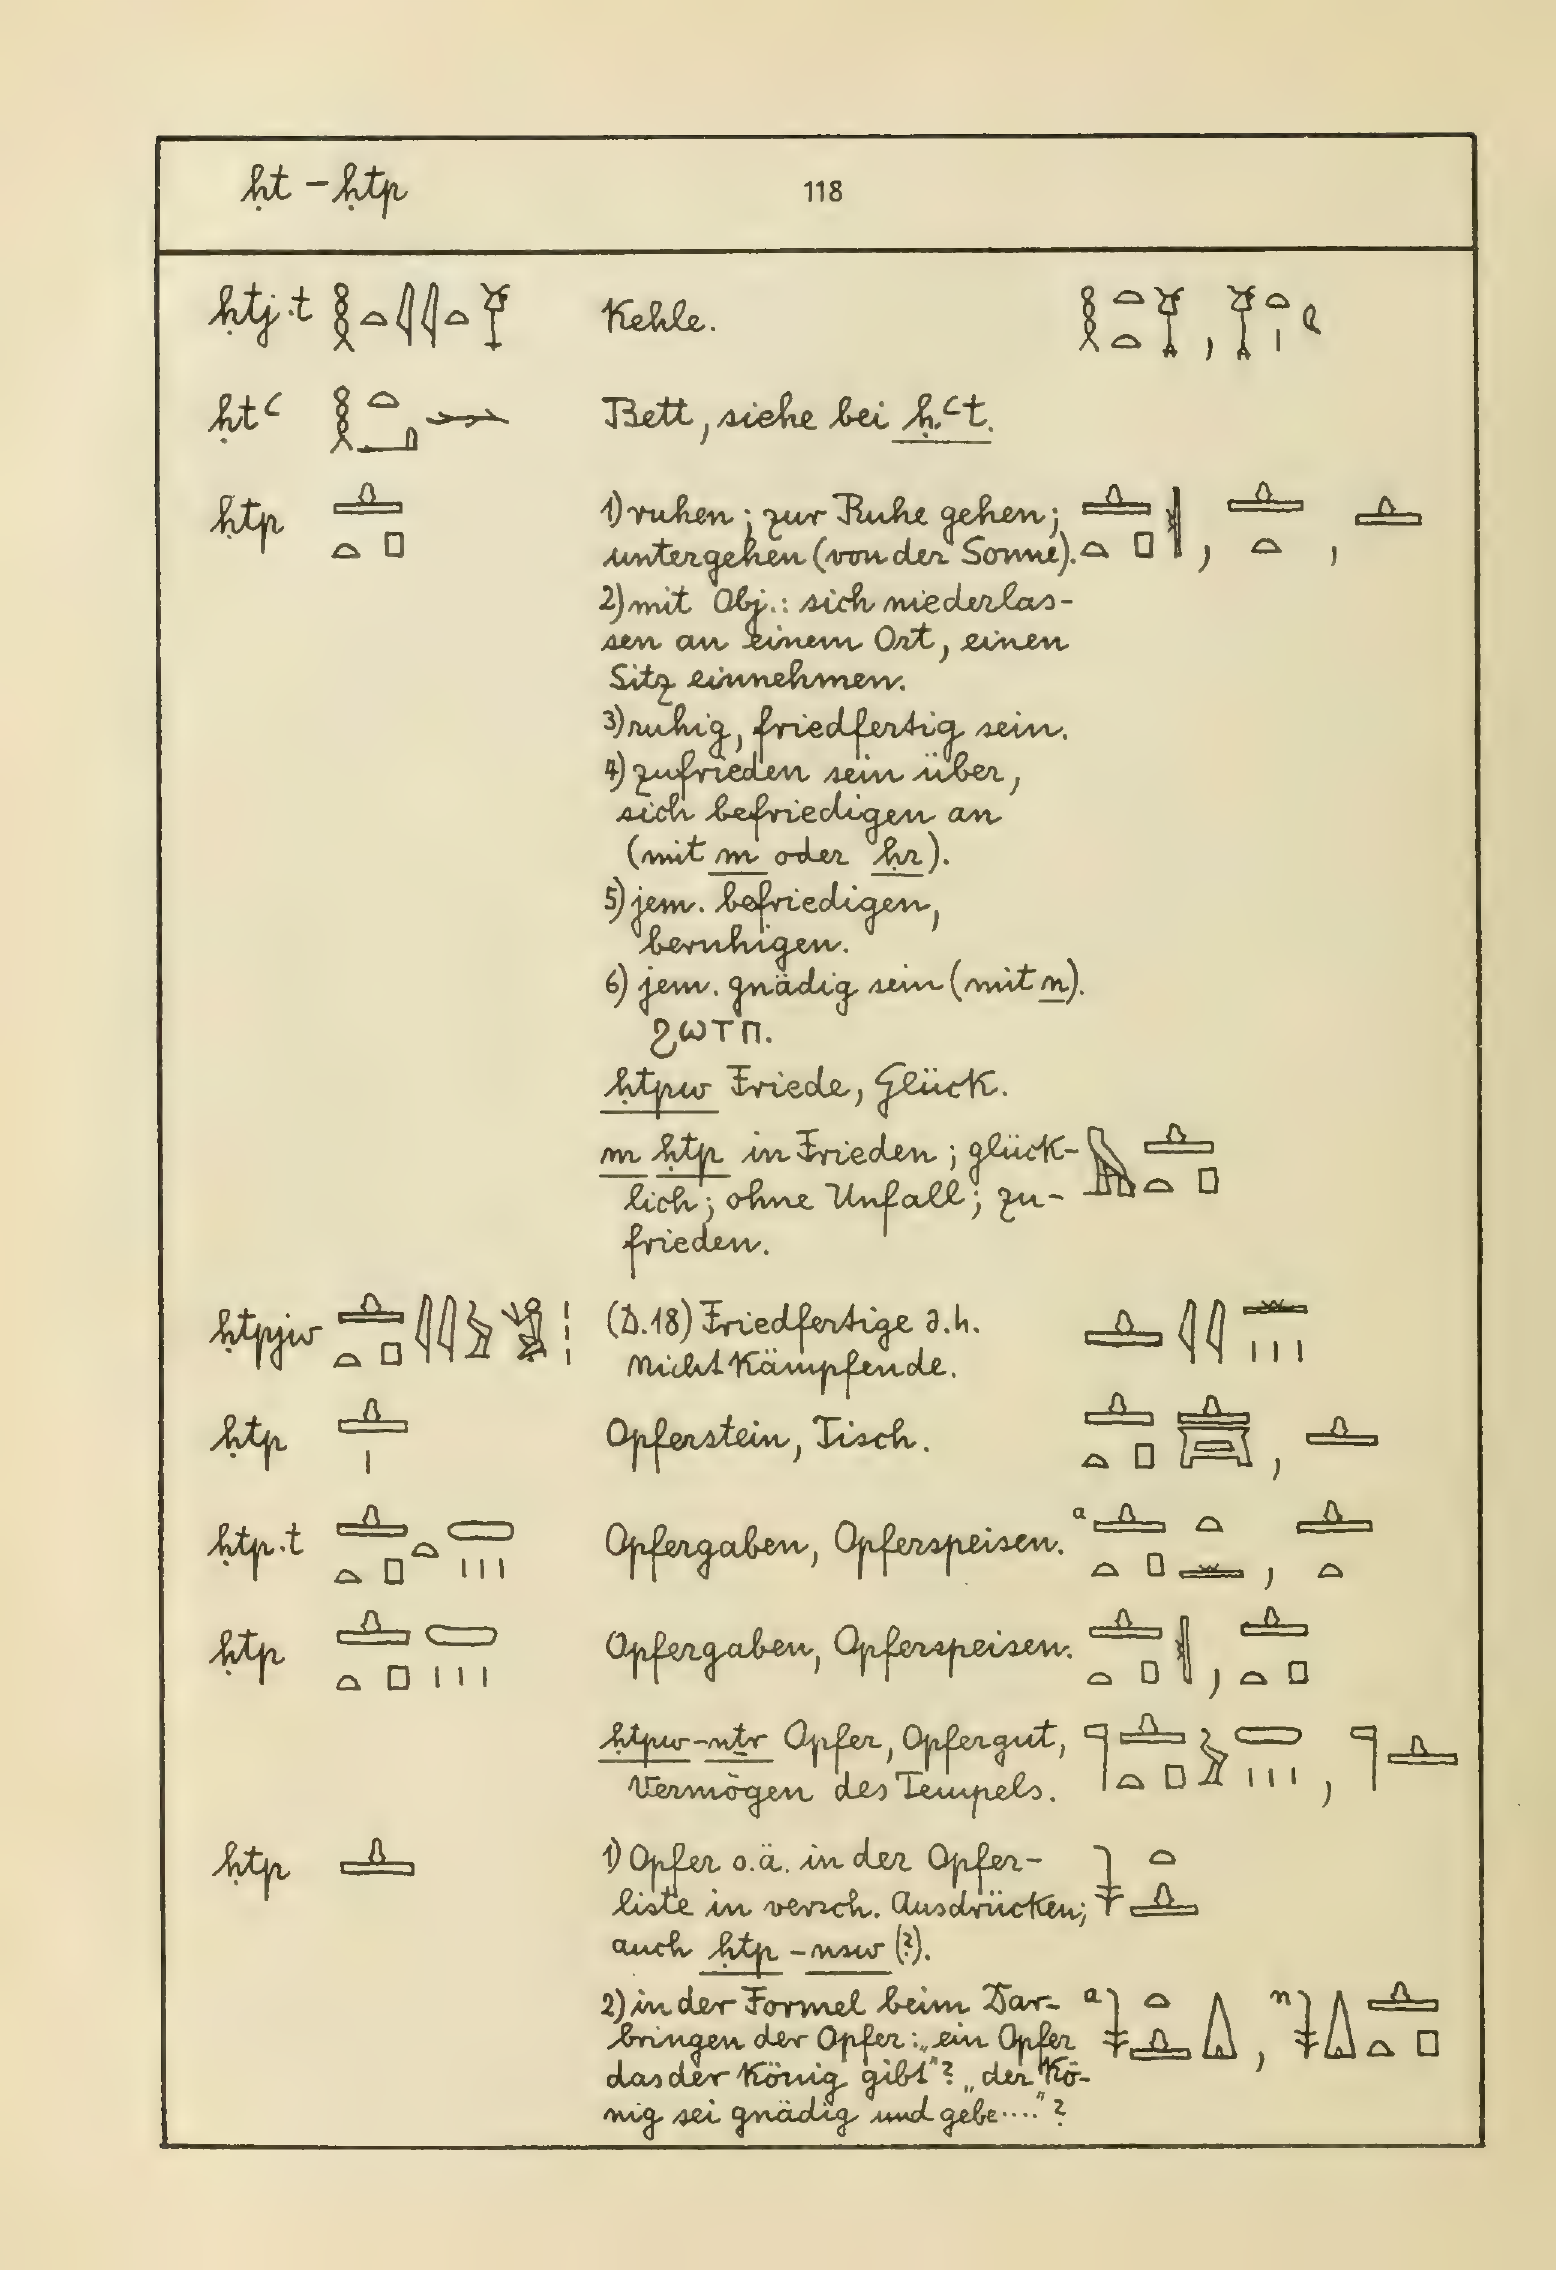 ḥt – ḥtp 118
ḥtj.t 𓎛𓏏𓇋𓇋𓏏 Kehle. 𓎛𓏏𓏏 , 𓏏𓏤
ḥtꜥ 𓎛𓏏𓂝𓆱 Bett, siehe bei ḥꜥt.
ḥtp 𓊵𓏏𓊪 1) ruhen; zur Ruhe gehen; 𓊵𓏏𓊪𓏛 , 𓊵𓏏 , 𓊵
untergehen (von der Sonne).
2) mit Obj.: sich niederlas-
sen an einem Ort, einen
Sitz einnehmen.
3) ruhig, friedfertig sein.
4) zufrieden sein über,
sich befriedigen an
(mit m oder ḥr).
5) jem. befriedigen,
beruhigen.
6) jem. gnädig sein (mit n).
ϩⲱⲧⲡ.
ḥtpw Friede, Glück.
m ḥtp in Frieden; glück- 𓊵𓏏𓊪
lich; ohne Unfall; zu-
frieden.
ḥtpjw 𓊵𓏏𓊪𓇋𓇋𓅱𓀀𓏪 (D.18) Friedfertige d.h. 𓊵𓇋𓇋𓏛𓏪
nicht Kämpfende.
ḥtp 𓊵𓏤 Opferstein, Tisch. 𓊵𓏏𓊪 , 𓊵
ḥtp.t 𓊵𓏏𓊪𓏏𓏪 Opfergaben, Opferspeisen. a 𓊵𓏏𓊪𓏏𓏛 , 𓊵𓏏
ḥtp 𓊵𓏏𓊪𓏪 Opfergaben, Opferspeisen. 𓊵𓏏𓊪𓏛 , 𓊵𓏏𓊪
ḥtpw-nṯr Opfer, Opfergut, 𓊹𓊵𓏏𓊪𓅱𓏪 , 𓊹𓊵
Vermögen des Tempels.
ḥtp 𓊵 1) Opfer o.ä. in der Opfer- 𓇓𓏏𓊵
liste in versch. Ausdrücken;
auch ḥtp-nsw (?).
2) in der Formel beim Dar- a 𓇓𓏏𓊵𓏙 , n 𓇓𓏙𓊵𓏏𓊪
bringen der Opfer: „ein Opfer
das der König gibt"? „der Kö-
nig sei gnädig und gebe ...."?